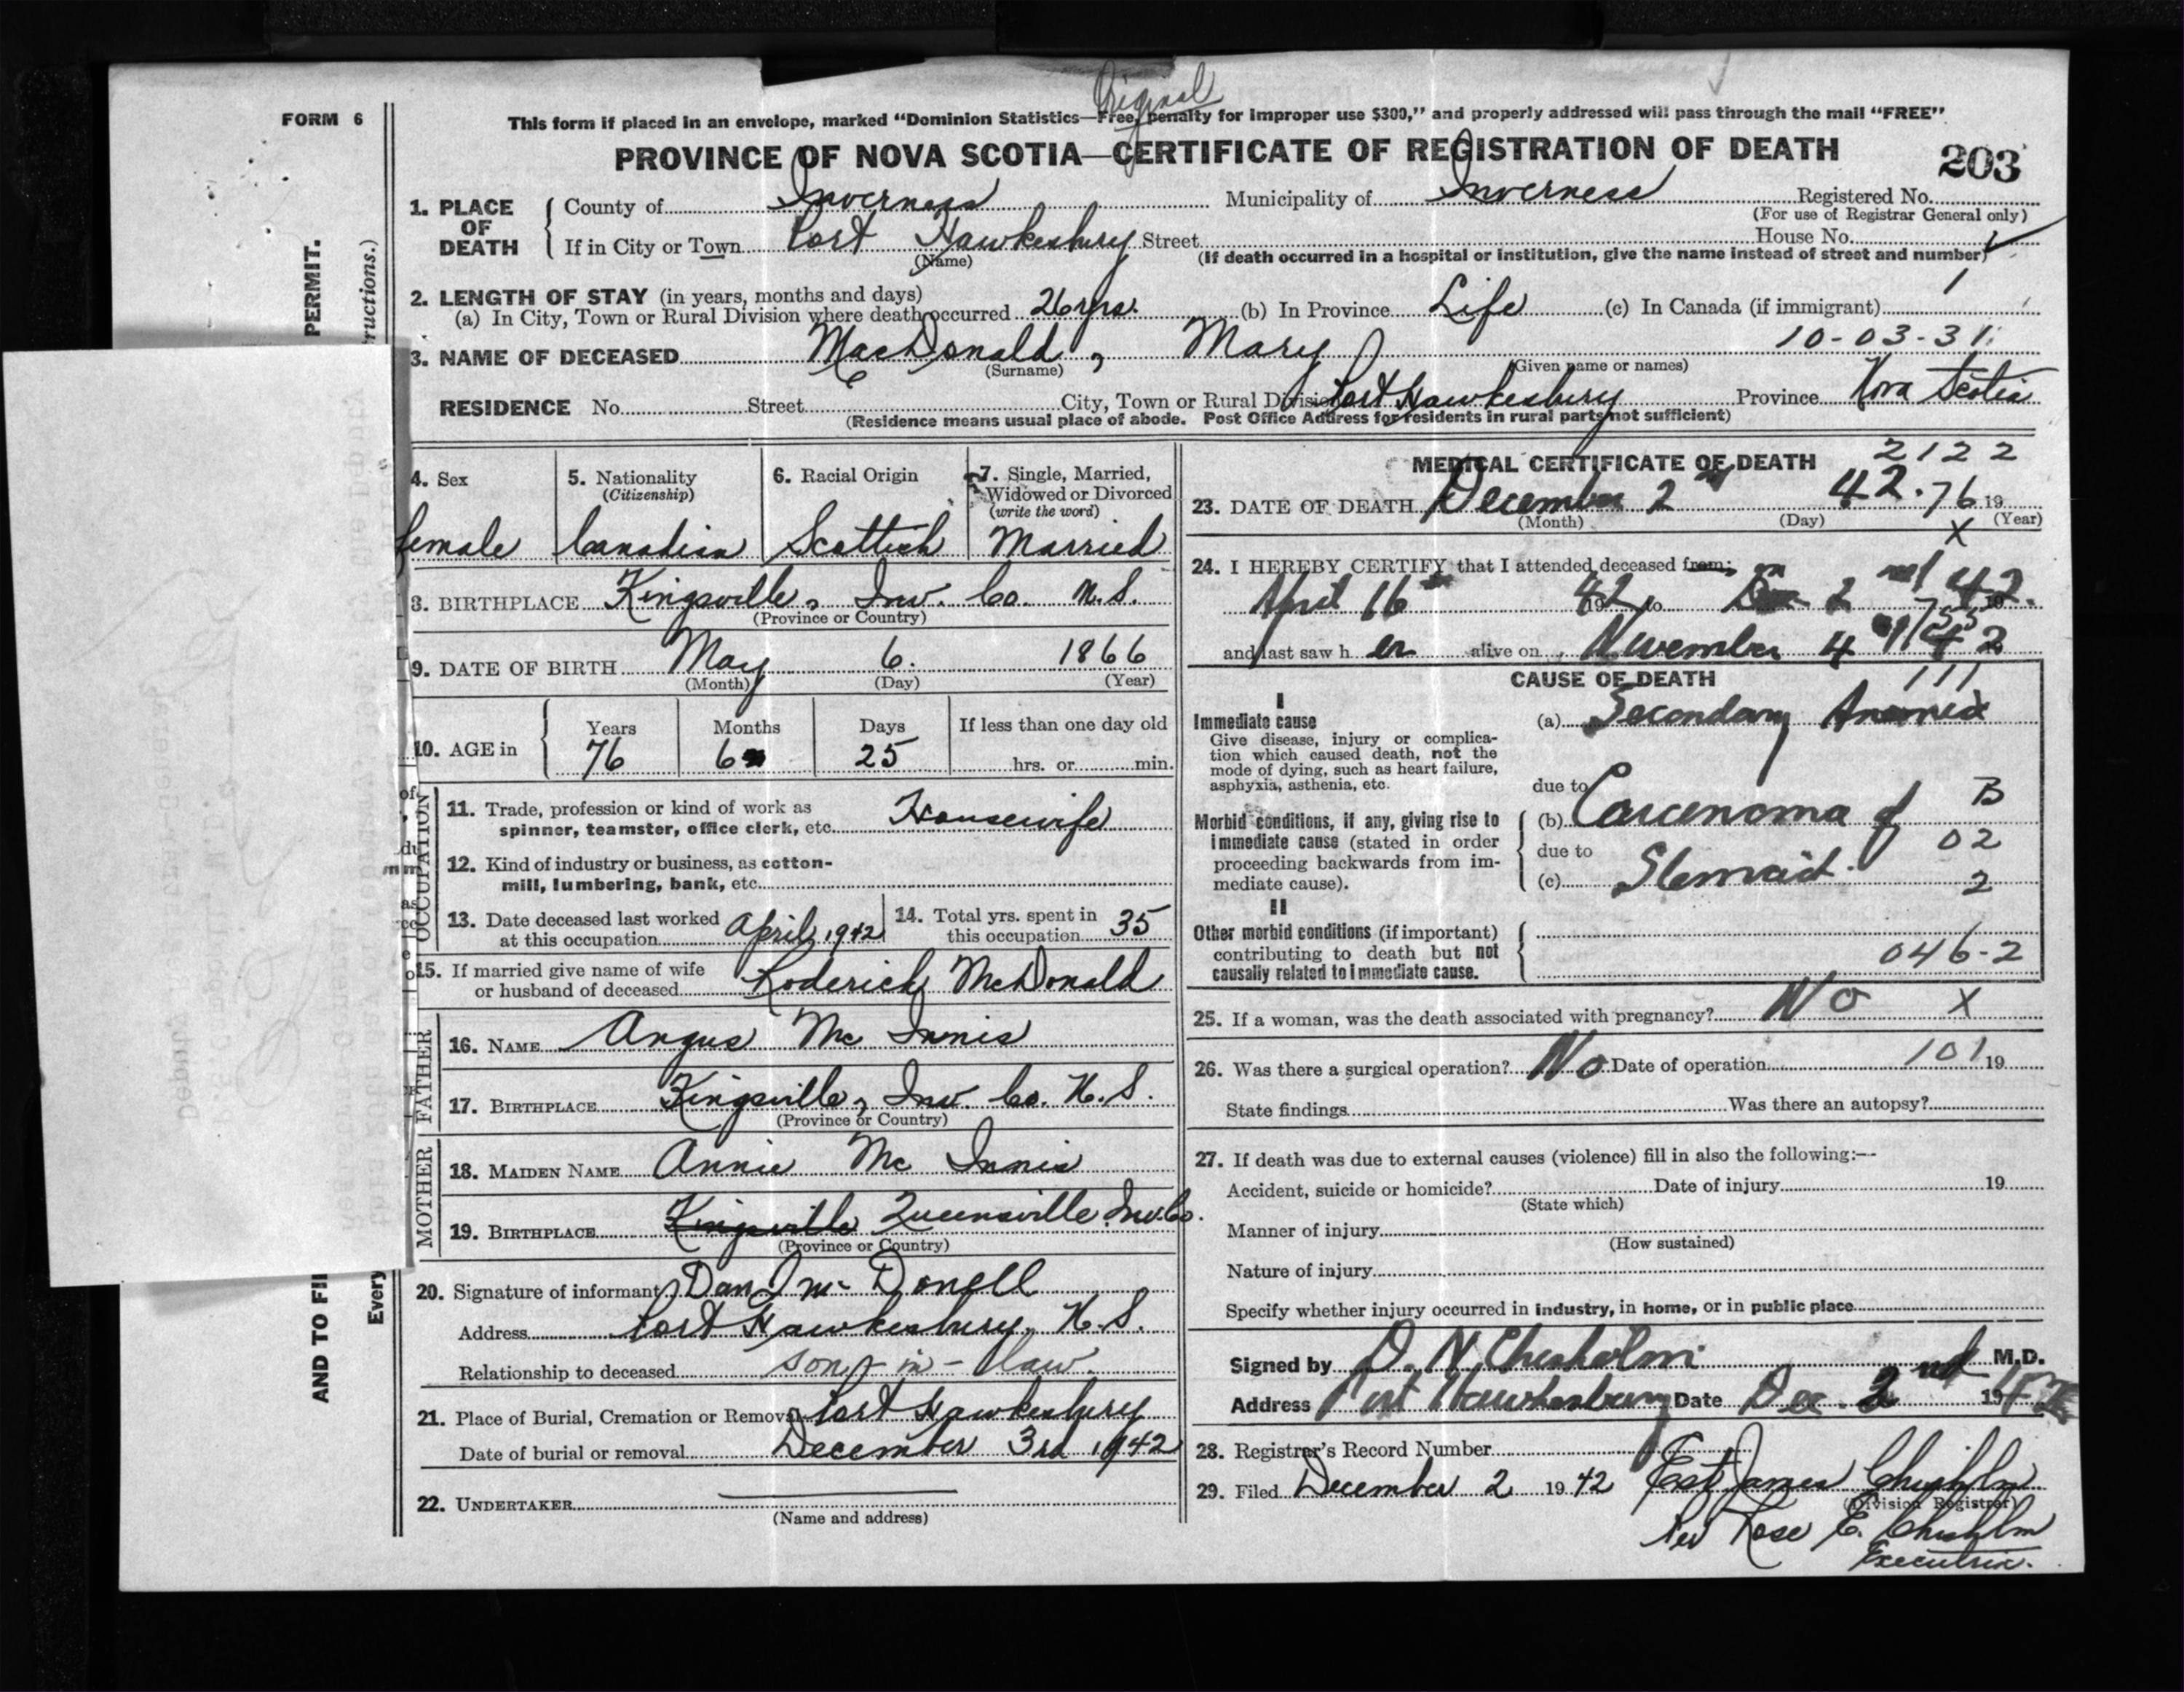 Original
FORM 6
This form if placed in an envelope, marked "Dominion Statistics—Free, penalty for improper use $300," and properly addressed will pass through the mail "FREE"
PROVINCE OF NOVA SCOTIA—CERTIFICATE OF REGISTRATION OF DEATH
203
1. PLACE OF DEATH
County of Inverness Municipality of Inverness Registered No.
(For use of Registrar General only)
If in City or Town Port Hawkesbury Street House No.
(Name) (If death occurred in a hospital or institution, give the name instead of street and number)
2. LENGTH OF STAY (in years, months and days)
(a) In City, Town or Rural Division where death occurred 26 yrs. (b) In Province Life (c) In Canada (if immigrant)
10-03-31
3. NAME OF DECEASED MacDonald, Mary
(Surname) (Given name or names)
RESIDENCE No. Street City, Town or Rural Division Port Hawkesbury Province Nova Scotia
(Residence means usual place of abode. Post Office Address for residents in rural parts not sufficient)
4. Sex
female
5. Nationality
(Citizenship)
Canadian
6. Racial Origin
Scottish
7. Single, Married,
Widowed or Divorced
(write the word)
Married
8. BIRTHPLACE Kingsville, Inv. Co. N.S.
(Province or Country)
9. DATE OF BIRTH May 6. 1866
(Month) (Day) (Year)
10. AGE in
Years Months Days If less than one day old
76 6 25 hrs. or min.
OCCUPATION
11. Trade, profession or kind of work as
spinner, teamster, office clerk, etc. Housewife
12. Kind of industry or business, as cotton-
mill, lumbering, bank, etc.
13. Date deceased last worked
at this occupation April, 1942
14. Total yrs. spent in
this occupation 35
15. If married give name of wife
or husband of deceased Roderick McDonald
FATHER
16. NAME Angus Mc Innis
17. BIRTHPLACE Kingsville, Inv. Co. N.S.
(Province or Country)
MOTHER
18. MAIDEN NAME Annie Mc Innis
19. BIRTHPLACE Kingsville Queensville Inv. Co.
(Province or Country)
20. Signature of informant Dan J Mc Donell
Address Port Hawkesbury, N.S.
Relationship to deceased son-in-law.
21. Place of Burial, Cremation or Removal Port Hawkesbury
Date of burial or removal December 3rd 1942
22. UNDERTAKER
(Name and address)
MEDICAL CERTIFICATE OF DEATH
2122
23. DATE OF DEATH December 2nd 42.76 19
(Month) (Day) (Year)
X
24. I HEREBY CERTIFY that I attended deceased from:
April 16 1942 to Dec 2 nd 1942.
and last saw h er alive on November 4 42
CAUSE OF DEATH
111
I
Immediate cause
Give disease, injury or complica-
tion which caused death, not the
mode of dying, such as heart failure,
asphyxia, asthenia, etc.
(a) Secondary Anemia
due to
Morbid conditions, if any, giving rise to
immediate cause (stated in order
proceeding backwards from im-
mediate cause).
(b) Carcenoma of B
due to 02
(c) Stomach. 2
II
Other morbid conditions (if important)
contributing to death but not
causally related to immediate cause.
046-2
25. If a woman, was the death associated with pregnancy? No X
26. Was there a surgical operation? No Date of operation 101 19
State findings Was there an autopsy?
27. If death was due to external causes (violence) fill in also the following:—
Accident, suicide or homicide? Date of injury 19
(State which)
Manner of injury
(How sustained)
Nature of injury
Specify whether injury occurred in industry, in home, or in public place
Signed by D. N. Chisholm M.D.
Address Port Hawkesbury Date Dec. 2 nd 1942
28. Registrar's Record Number
29. Filed December 2 1942 Est James Chisholm
(Division Registrar)
Per Rose E. Chisholm
Executrix.
PERMIT.
ructions.)
AND TO FI
Every